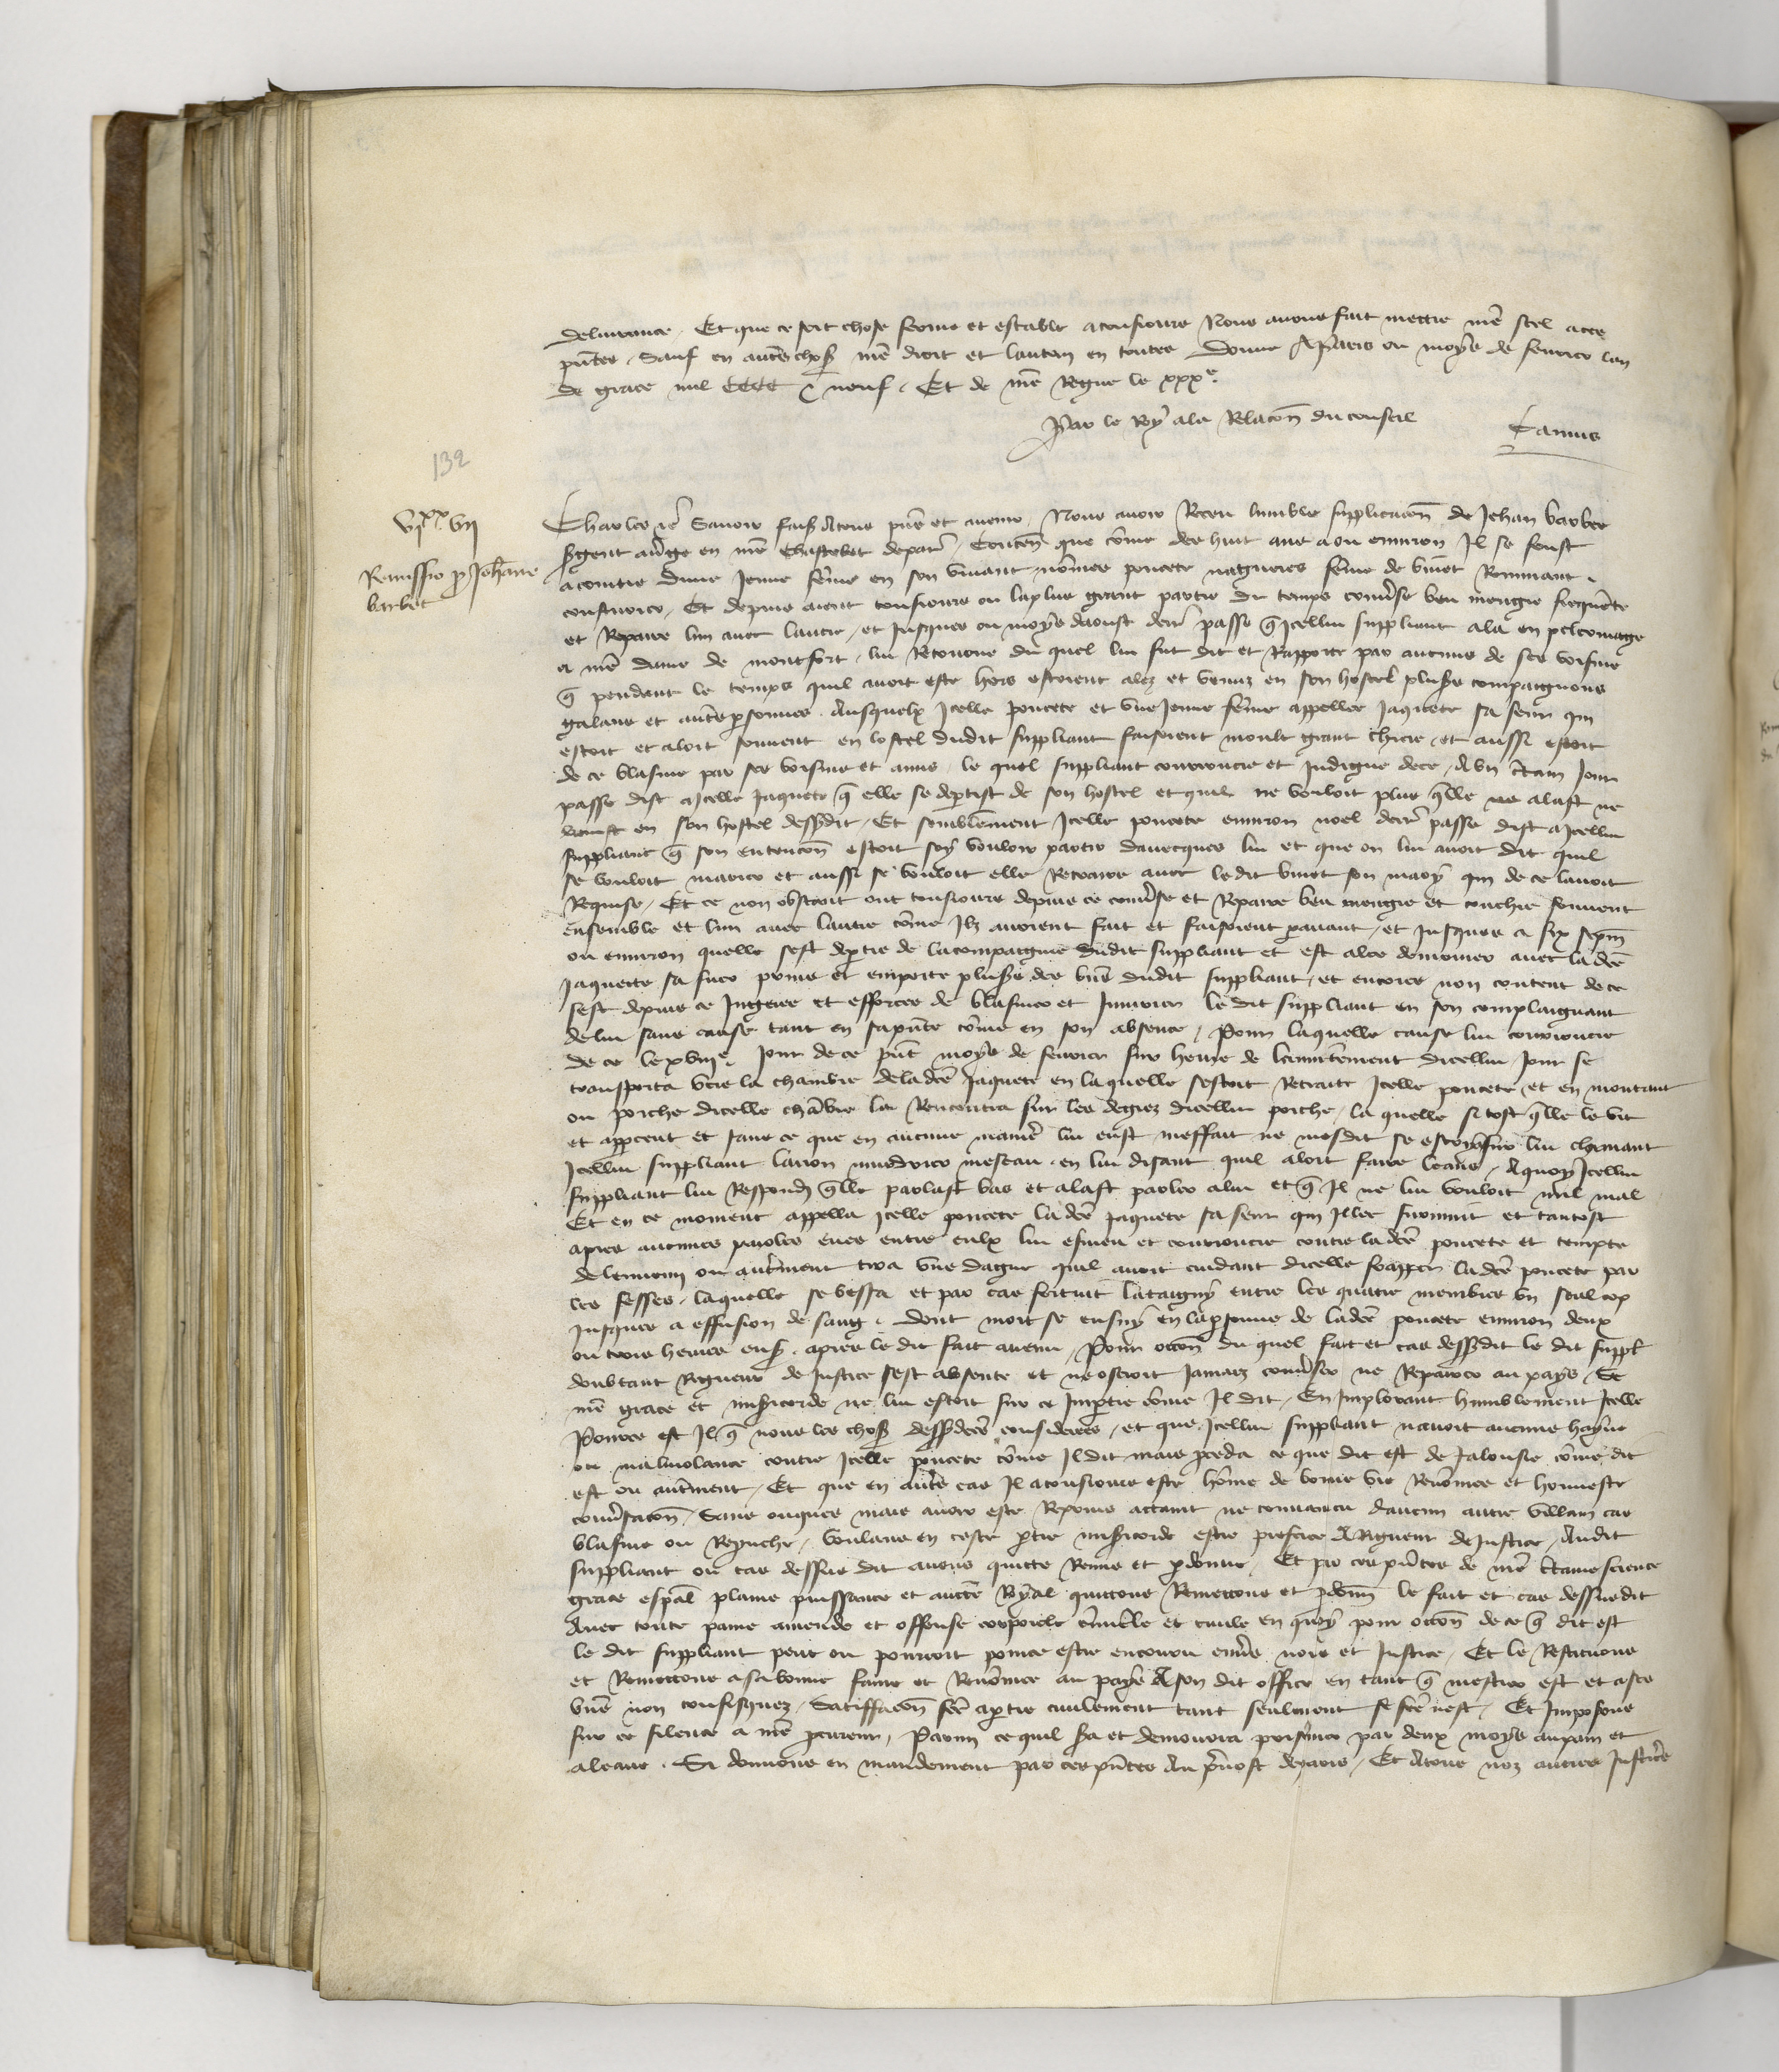 delivrance. Et que ce soit chose ferme et estable a tousiours Nous avons fait mettre nre seel a ces
pntes. Sauf en autres choses nre droit et lautruy en toutes Donne A paris ou moys de fevrier lan
de grace mil CCCC & neuf. Et de nre Regne le xxxe.
Par le Roy a la Relacion du conseil
Camus
132
VIxx VII
Remissio pro Johanne
barbet
Charles etc Savoir faisons A tous pns et avenir. Nous avoir Receu lumble supplicacion de Jehan barbet
sergent a verge en nre Chastellet de paris, Contenant que comme des huit ans a ou environ Il se feust
acointie dune jenne femme en son vivant nommee poncete nagueres femme de
et depuis aient tousiours ou la plus grant partie du temps converse beu mengie frequente
et Repaire lun avec lautre, et Jusques ou moys daoust derr passe que Icellui suppliant ala en pelerinage
a nre dame de montfort, lui Retourne du quel lui fut dit et Rapporte par aucuns de ses voisins
que pendant le temps quil avoit este hors estoient alez et venuz en son hostel plusrs compaignons
galans et autres personnes. Ausquelx Icelle poncete et une Jenne femme appellee Jaquete sa seur qui
estoit et aloit souvent en lostel dudit suppliant faisoient moult grant chiere, et aussi estoit
de ce blasme par ses voisins et amis. le quel suppliant courroucie et indigne de ce, A un certain jour
passe dist a Icelle Jaquete que elle se departist de son hostel et quil ne vouloit plus quelle ne alast ne
venist en son hostel dessusdit, Et semblement Icelle poncete environ noel derr passe dist a Icellui
suppliant que son entencion estoit soy vouloir partir davecques lui et que on lui avoit dit quil
se vouloit marier et aussi se vouloit elle Retraire avec ledit son mary qui de ce lavoit
Requise, Et ce non obstant ont tousiours depuis ce converse et Repaire beu mengie et couchie souvent
ensemble et lun avec lautre comme Ilz avoient fait et faisoient paravant, et Jusques a six sepm
ou environ quelle sest departie de la compaignie dudit suppliant et est alee demourer avec ladce
Jaquete sa suer prins et emporte plusrs des biens dudit suppliant, et encores non content de ce
sest depuis ce Ingeree et efforcee de blasmer et Injurier le dit suppliant en son complaignant
de lui sans cause tant en sa pnce comme en son absence, Pour laquelle cause lui courroucie
de ce le xviije. Jour de ce pnt moys de fevrier sur heure de dicellui Jour se
transporta vers la chambre de ladce Jaquete en laquelle sestoit Retraite Icelle poncete, et en montant
ou porche dicelle chambre la Rencontra sur les degrez dicellui porche, la quelle si tost quelle le vit
et appceut et sans ce que en aucune maniere lui eust meffait ne mesdit se escrya sur lui clamant
Icellui suppliant larron murdrier meseau. en lui disant quil aloit faire leans, A quoy Icellui
suppliant lui Respondi quelle parlast bas et alast parler a lui et que Il ne lui vouloit nul mal
Et en ce moment appella Icelle poncete ladce Jaquete sa seur qui Illec survint et tantost
apres aucunes paroles eues entre eulx lui esmeu et courroucie contre ladce poncete et tempte
de lennemi ou autrement tira une dague quil avoit cuidant dicelle frapper ladce poncete par
les fesses. laquelle se vessa et par cas fortuit lataigny entre les quatre membres un seul cop
Jusques a effusion de sang. dont mort se ensuy en la personne de ladce poncete environ deux
ou trois heures ens. apres le dit fait avenu, Pour occon du quel fait et cas dessusdit le dit suppl
doubtant Rigueur de Justice sest absente et ne oseroit Jamaiz converser ne Repairer au pays, Se
nre grace et misericorde ne lui estoit sur ce Impartie comme Il dit, En Implorant humblement Icelle
Pource est Il que nous les choses dessusdces considerees, et que Icellui suppliant navoit aucune hayne
ou malivolence contre Icelle poncete comme Il dit mais proceda ce que dit est de Jalousie comme dit
est ou autrement, Et que en autres cas Il a tousiours este homme de bonne vie Renommee et honneste
conversacion, Sans onques mais avoir este Reprins attaint ne convaincu daucun autre villain cas
blasme ou Reprouche, Voulans en ceste partie misericorde estre preferee A Rigueur de Justice, Audit
suppliant ou cas dessus dit avons quitte Remis et pardonne, Et par ces pntes de nre certaine science
grace especial plaine puissance et auctorite Royal quittons Remettons et pardonnons le fait et cas dessusdit
Avec toute paine amende et offense corporele criminele et civile en quoy pour occon de ce que dit est
le dit suppliant peut ou pourroit pource estre encouru envers nous et Justice, Et le Restituons
et Remettons a sa bonne fame et Renommee au pays A son dit office en tant que mestier est et a ses
biens non confisquez, Satisfaccion fce a partie civilement tant seulement se fce nest, Et Imposons
sur ce silence a nre procureur, Parmi ce quil sera et demourra prisonnier par deux moys au pain et
a leaue. Si donnons en mandement par ces pntes Au prevost de paris, Et A tous noz autres Justiciers